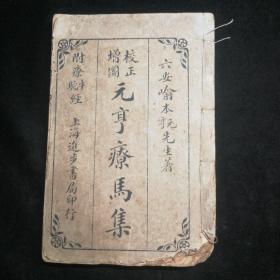 六安喻本元先生著
校正
增圖
元亨療馬集
附療牛
駝經
上海進步書局印行